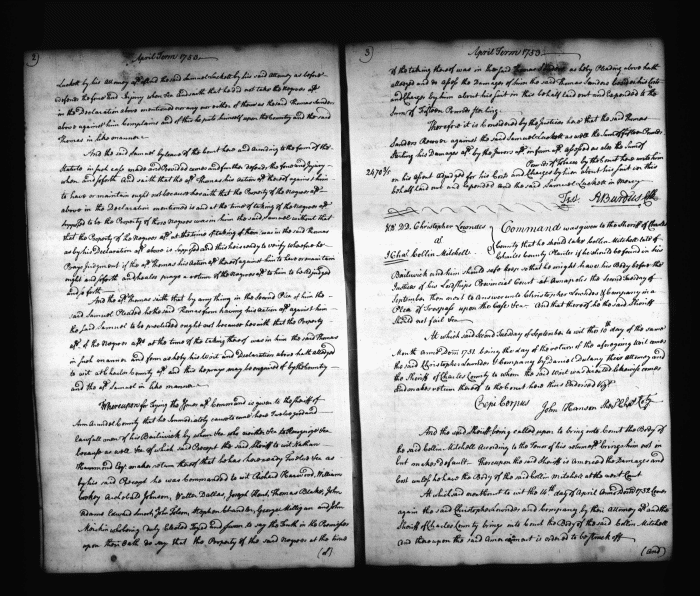 2)
April Term 1753
Luckett by his Attorney afd and the said Samuel Luckett by his said Attorney as before
defends the force and Injury when &ca and saith that he did not take the Negroes afd
in the Declaration above mentioned nor any nor either of them as the said Thomas Sanders
above against him complains and of this he puts himself upon the Country and the said
Thomas in like manner
And the said Samuel by leave of the Court here and according to the form of the
Statute in such case made and Provided comes and further defends the force and Injury
when and so forth and saith that the afd Thomas his Action afd thereof against him
to have or maintain ought not because he saith that the Property of the Negroes afd
above in the Declaration mentioned is and at the time of taking of the Negroes afd
Supposed to be the Property of them Negroes was in him the said Samuel without that
that the Property of the Negroes afd at the time of taking of them was in the said Thomas
as by his Declaration afd above is Supposed and this he is ready to verify wherefore he
Prays Judgment if the afd Thomas his Action afd thereof against him to have or maintain
ought and so forth and he also prays a return of the Negroes afd to him to be Adjudged
and so forth
And the afd Thomas saith that by any thing in the Second Plea of him the
said Samuel Pleaded he the said Thomas from having his Action afd against him
the said Samuel to be precluded ought not because he saith that the Property
of the Negroes afd at the time of the taking thereof was in him the said Thomas
in such manner and form as he by his Writ and Declaration above hath alledged
to wit at Charles County afd and this he prays may be enquired of by the Country
and the afd Samuel in like manner
Whereupon for trying the Issues afd Command is given to the Sheriff of
Ann Arundel County that he Immediately cause to come here Twelve good and
Lawfull men of his Bailiwick by whom &ca who neither &ca to Recognize &ca
because as well &ca of which said Precept the said Sheriff to wit Nathan
Hammond Esqr makes return thereof that he has here ready Twelve &ca as
by his said Precept he was commanded to wit Richard Harwood, William
Archibald Johnson, Walter Dallas, Joseph Blake, John
Adams Edward John Jobson, Stephen George Milligan and John
who being duly Elected Tryed and Sworn to say the Truth in the Premisses
upon their Oath do say that the Property of the said Negroes at the time
(of)
3
April Term 1753
of the taking thereof was in him the said Thomas Sanders as he by Pleading above hath
alledged and do assess the Damages of him the said Thomas Sanders besides his Costs
and Charges by him about his Suit in this behalf laid out and expended to the
Sum of Fifteen Pounds Sterling
Therefore it is considered by the Justices here that the said Thomas
Sanders Recover against the said Samuel Luckett as well the Sum of Fifteen Pounds
Sterling his Damages afd by the Jurors afd in form afd assessed as also the Sum of
Pounds of Tobacco by the Court here unto him
2470½
on his Assent Adjudged for his Costs and Charges by him about his Suit in this
behalf laid out and expended and the said Samuel Luckett in Mercy
Test R Burdus Clk
DD Christopher Lowndes
at
Collin Mitchell
Command was given to the Sheriff of Charles
County that he should take Collin Mitchell late of
Charles County Planter if he should be found in his
Bailiwick and him should safe keep so that he might have his Body before the
Justices of his Lordships Provincial Court at Annapolis the Second Tuesday of
September then next to Answer unto Christopher Lowndes & Company in a
Plea of Trespass upon the Case &ca And that thereof he the said Sheriff
should not fail &ca
At which said Second Tuesday of September to wit the 10th day of the same
Month Anno Dom 1751 being the day of the return of the aforegoing writ comes
the said Christopher Lowndes & Company by Daniel Dulany their Attorney and
the Sheriff of Charles County to whom the said writ was directed likewise comes
and makes return thereof to the Court here thus Endorsed Vizt
Cepi Corpus
John Hanson Sher Chas Cty
And the said Sheriff being called upon to bring into Court the Body of
the said Collin Mitchell According to the Tenor of his return afd brings him not in
but makes default Thereupon the said Sheriff is Amerced the Damages and
Cost unless he have the Body of the said Collin Mitchell at the next Court
At which said next Court to wit the 14th day of April Anno Dom 1752 Comes
again the said Christopher Lowndes and Company by their Attorney afd and the
Sheriff of Charles County brings into Court the Body of the said Collin Mitchell
and thereupon the said Amerciament is ordered to be struck off
(And)